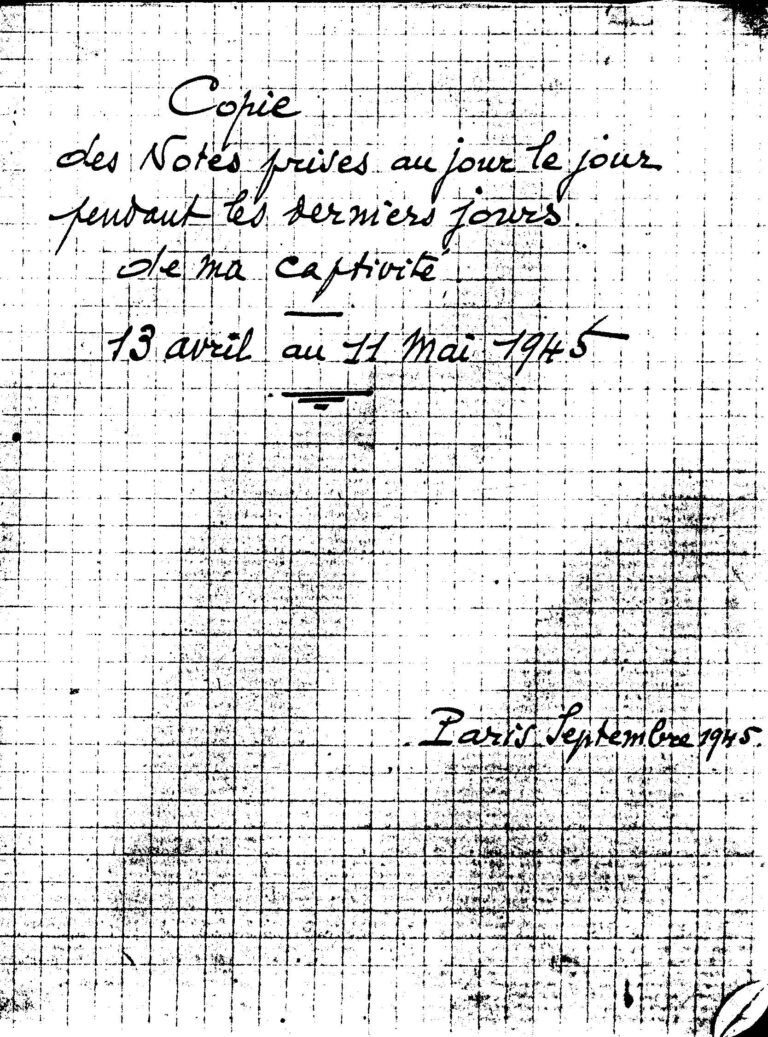 Copie
des Notes prises au jour le jour
pendant les derniers jours.
de ma captivité.
13 avril au 11 Mai 1945
Paris Septembre 1945.